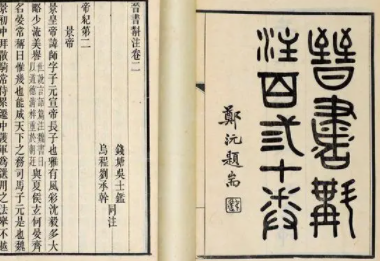 晉書斠
注百弎十卷
鄭沅題耑
晉書斠注卷二
錢塘吳士鑑
烏程劉承幹同注
帝紀第二
景帝
景皇帝諱師字子元宣帝長子也雅有風彩沈毅多大
略少流美譽世說言語篇注魏書曰以道德清粹重於朝廷與夏侯玄何晏齊
名晏常稱曰惟幾也能成天下之務司馬子元是也魏
景初中拜散騎常侍累遷中護軍為選用之法舉不越